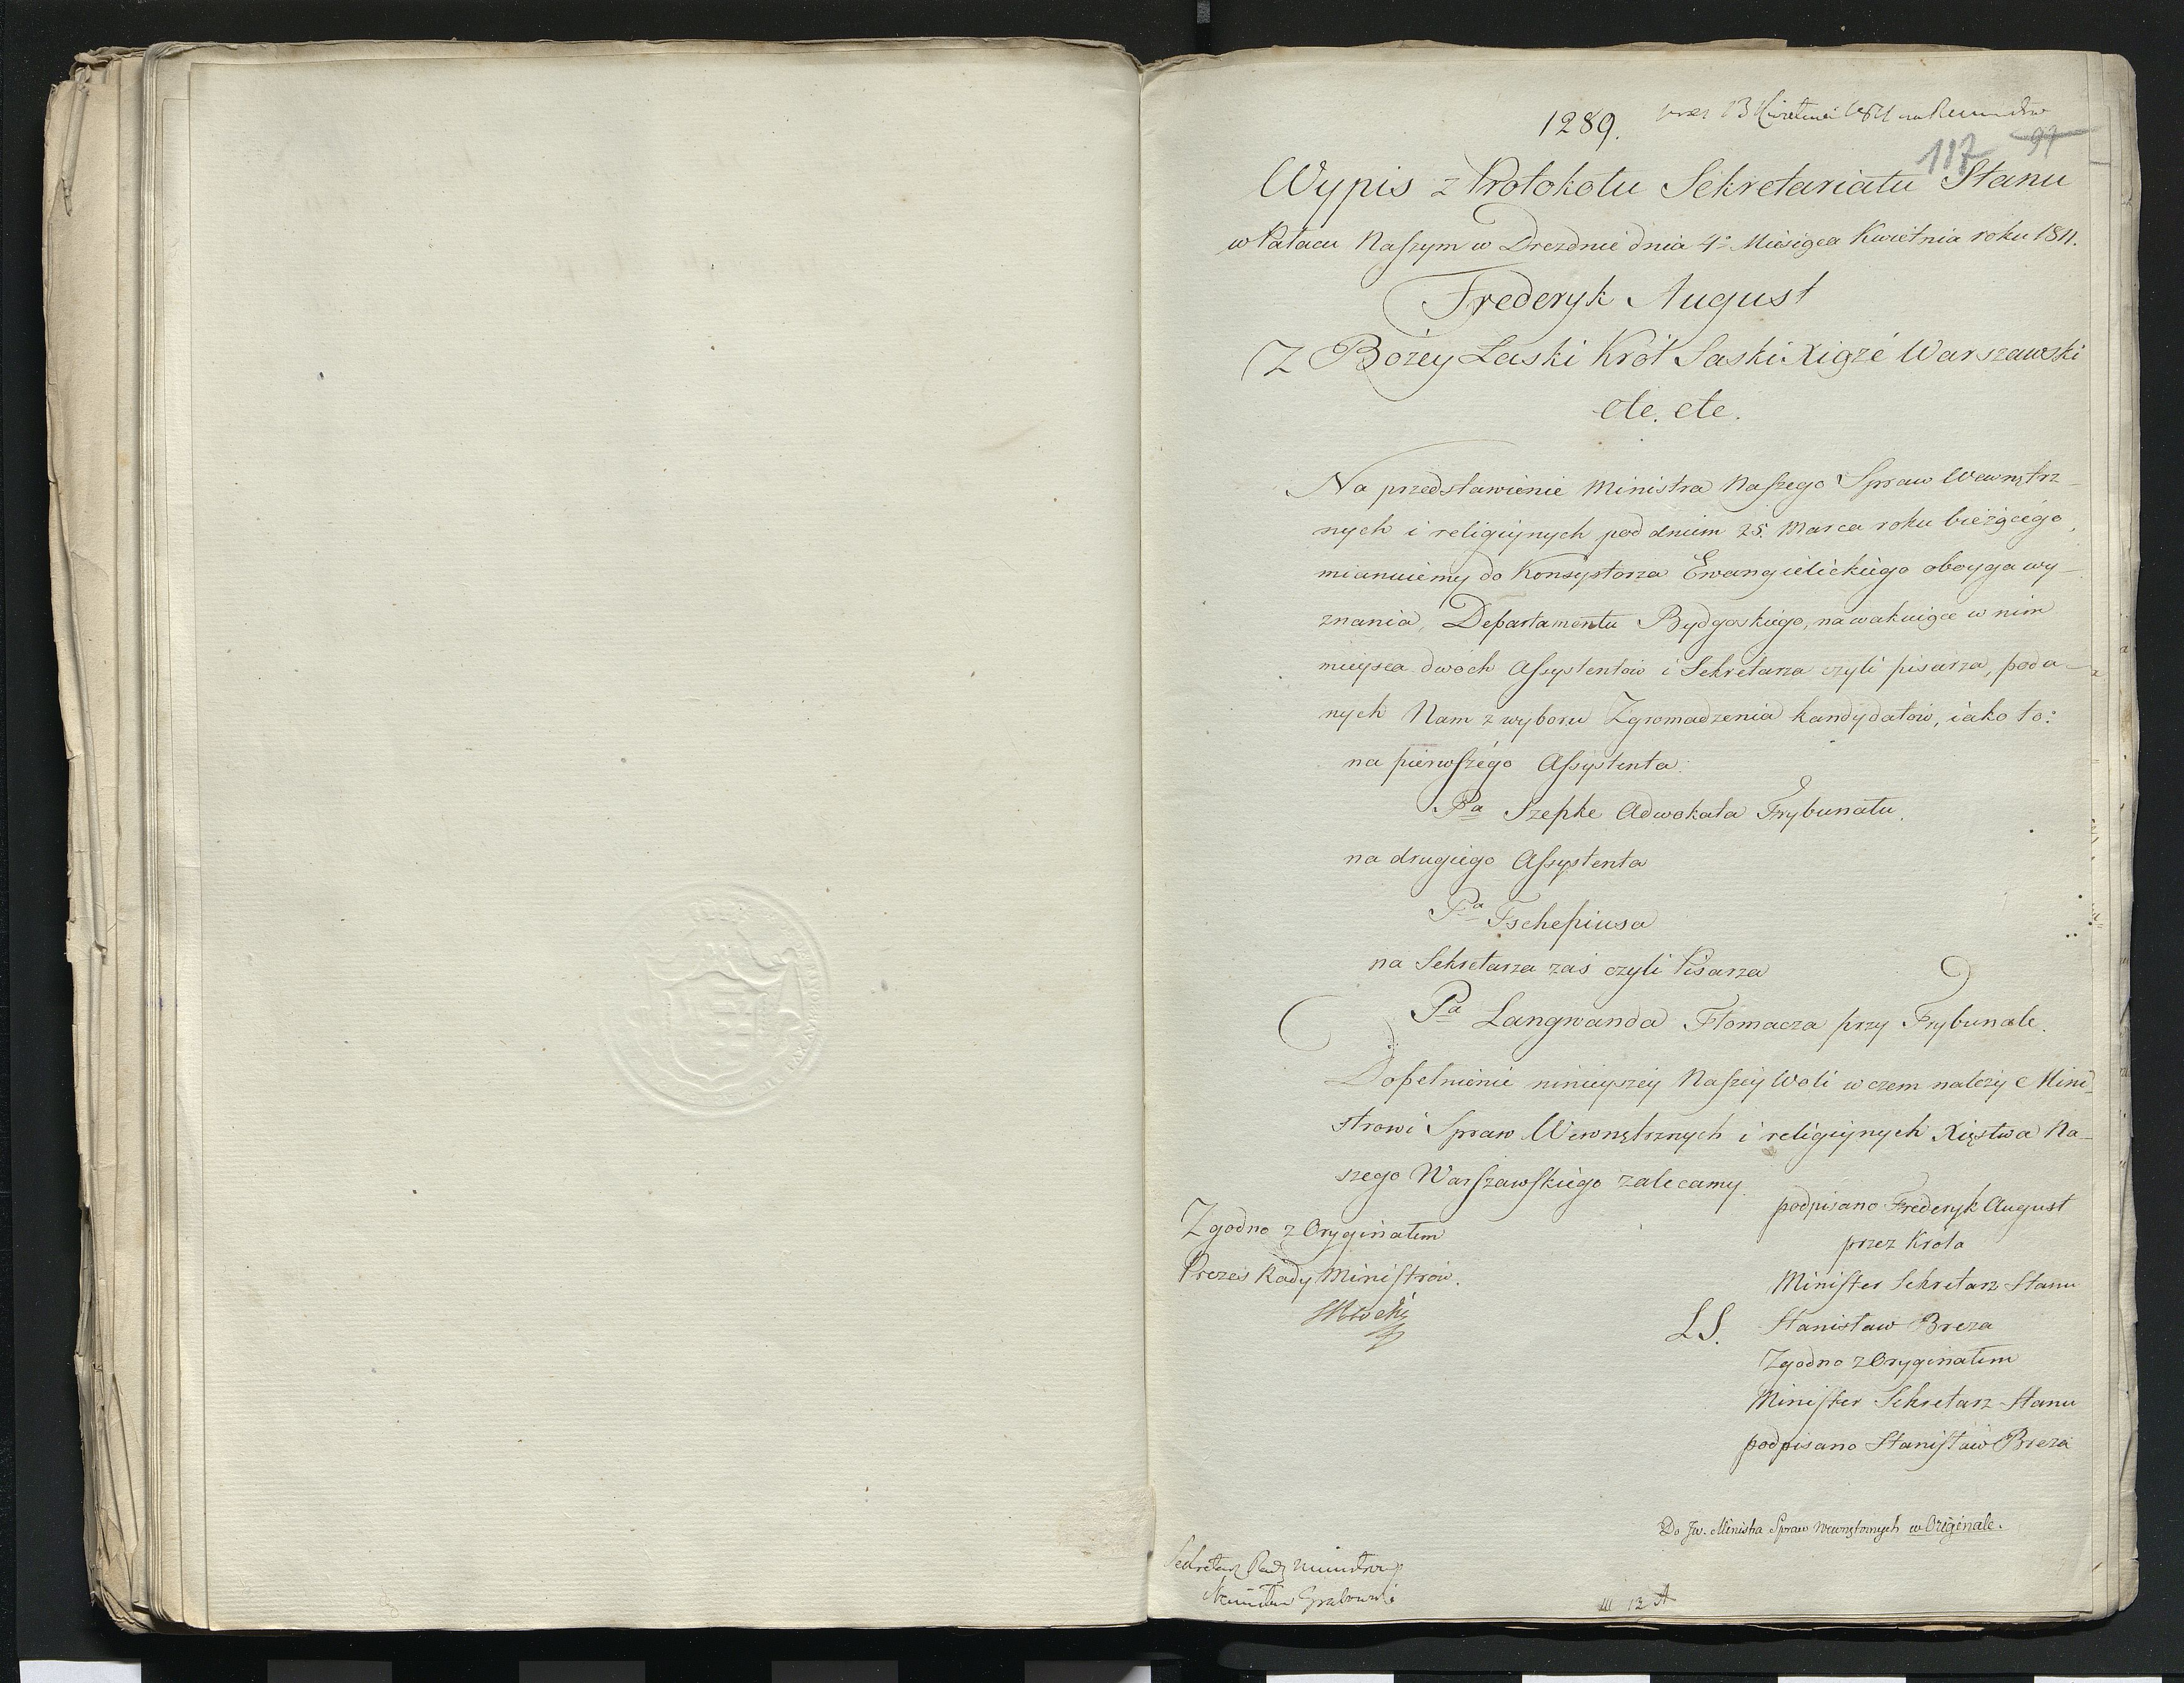 1289.
117 97
Wypis z Protokołu Sekretariatu Stanu
w Pałacu Naszym w Dreznie dnia 4º Miesiąca Kwietnia roku 1811.
Frederyk August
Z Bożey Łaski Król Saski Xiąże Warszawski
etc. etc.
Na przedstawienie Ministra Naszego Spraw Wewnętrz-
nych i religiynych pod dniem 25. Marca roku bieżącego,
mianuiemy do Konsystorza Ewangielickiego oboyga wy-
znania, Departamentu Bydgoskiego, na wakuiące w nim
mieysca dwoch Assystentów i Sekretarza czyli pisarza, poda-
nych Nam z wyboru Zgromadzenia kandydatów, iako to:
na pierwszégo Assystenta
Pa Szepke Adwokata Trybunału.
na drugiego Assystenta
Pa Tschepiusa
na Sekretarza zaś czyli Pisarza
Pa Langwanda Tłomacza przy Trybunale.
Dopełnienie ninieyszéy Naszéy Woli w czem należy Mini-
strowi Spraw Wewnętrznych i religiynych Xięstwa Na-
szego Warszawskiego zalecamy.
podpisano Frederyk August
przez Króla
Minister Sekretarz Stanu
L.S. Stanisław Breza
Zgodno z Oryginałem
Minister Sekretarz Stanu
podpisano Stanisław Breza
Zgodno z Oryginałem
Prezes Rady Ministrów.
Do Jw. Ministra Spraw Wewnętrznych w Originale.
Sekretarz Rady Ministrów
Grabowski
III 12 A